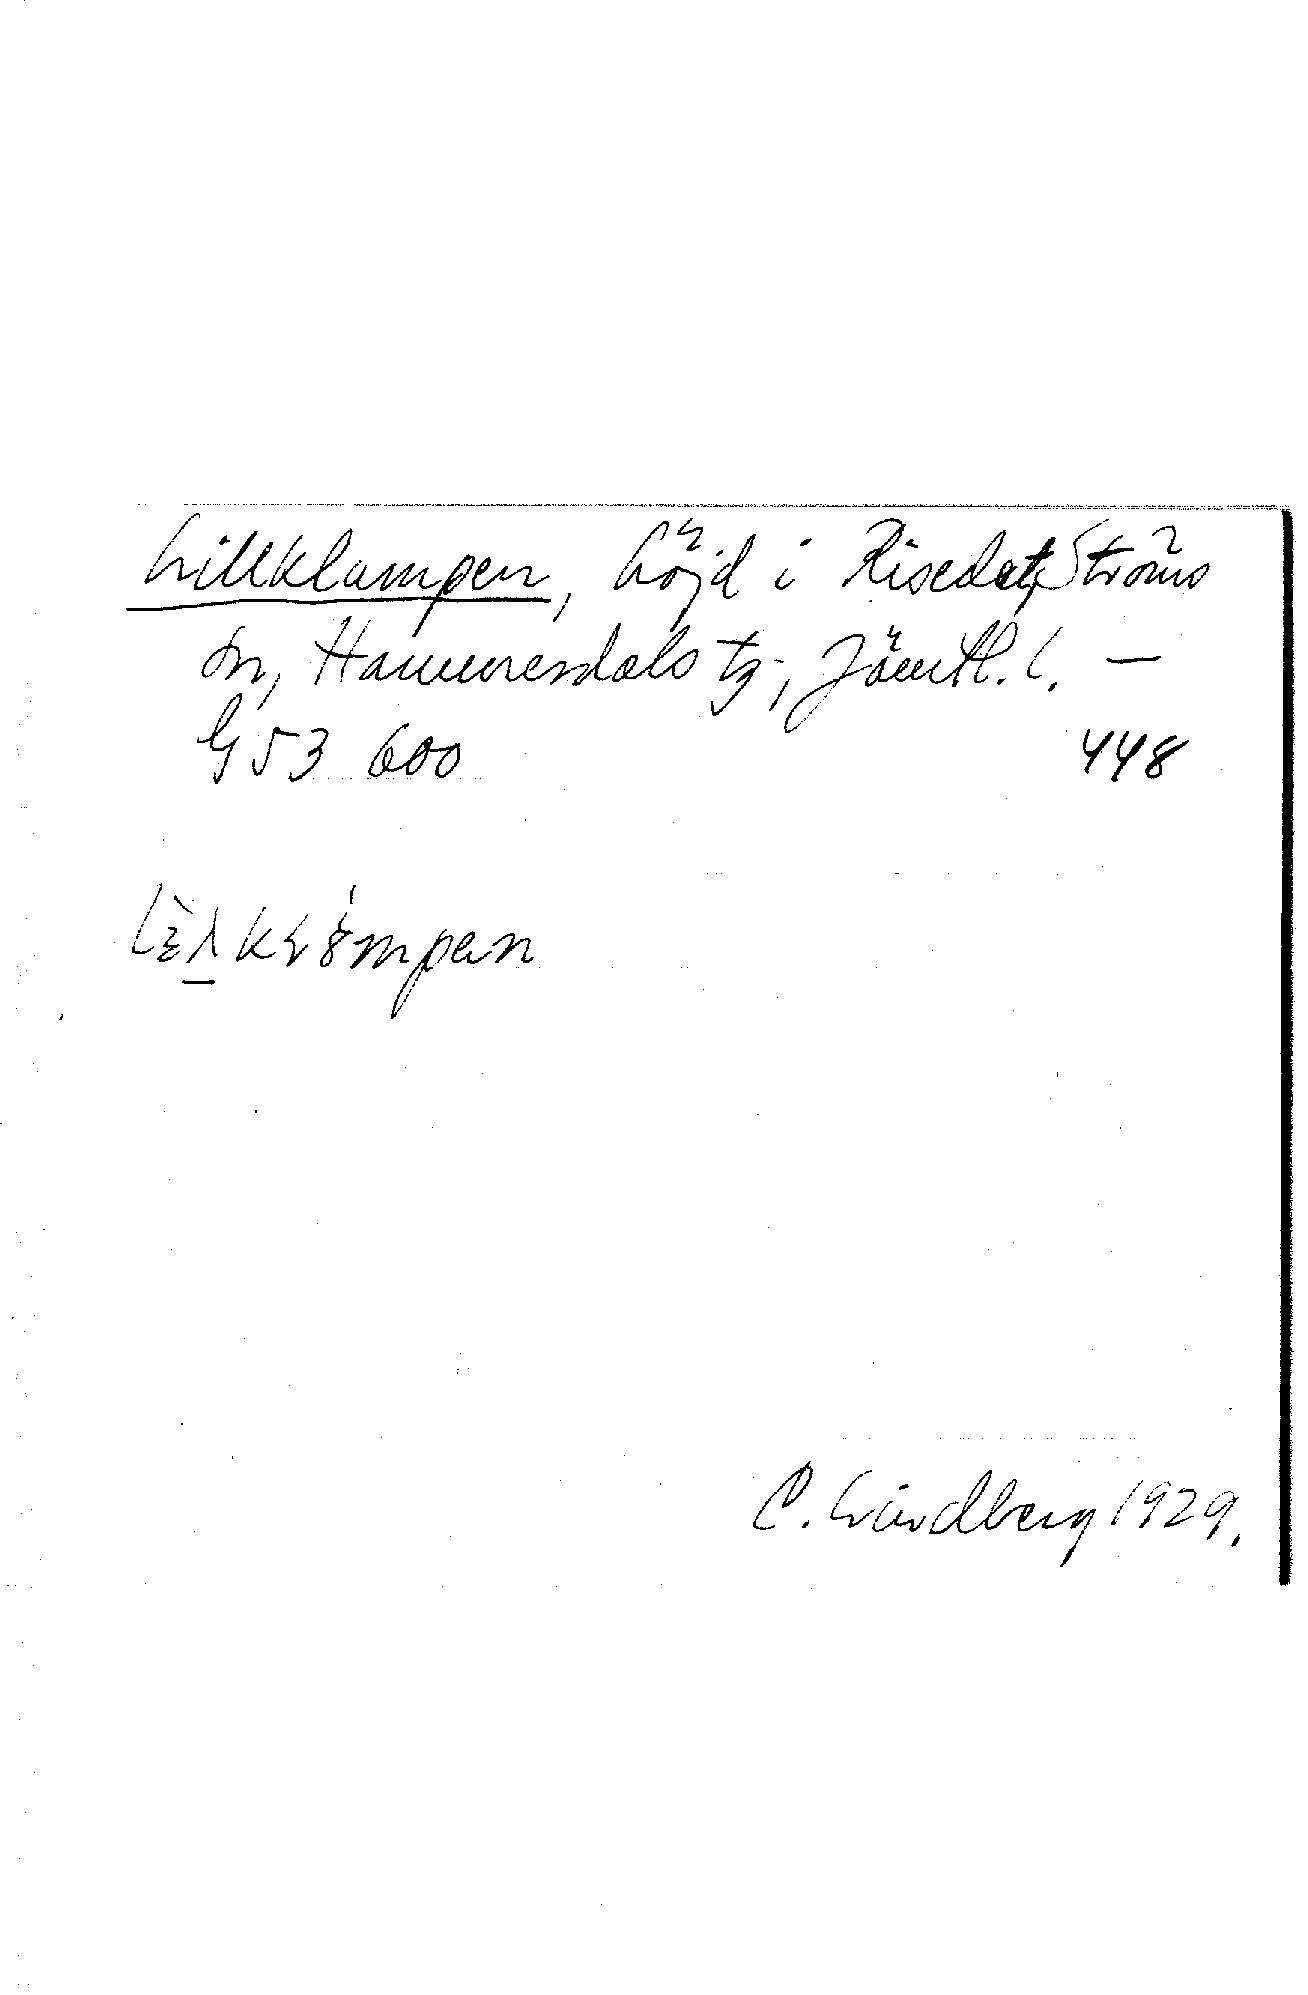 Lillklumpen, höjd i Risedet, Ströms
sn, Hammerdals tg., Jämtl. l. —
G 53 600 448
C. Lindberg 1929.